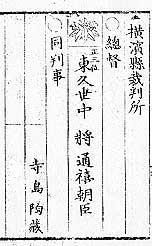 横濱縣裁判所
総督
正三位
東久世中將通禧朝臣
同判事
寺島陶蔵